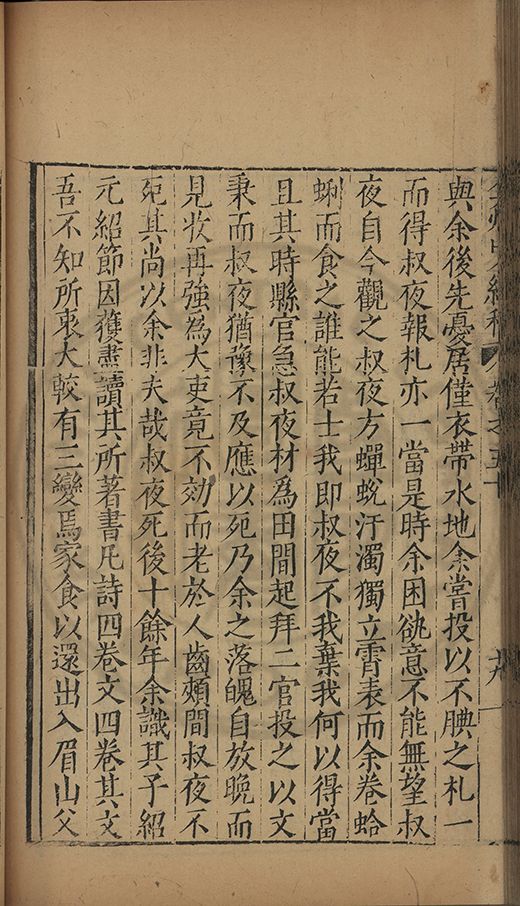 與余後先憂居僅衣帶水地余嘗投以不腆之札一
而得叔夜報札亦一當是時余困欲意不能無望叔
夜自今觀之叔夜方蟬蛻汙濁獨立霄表而余卷蛤
蜊而食之誰能若士我即叔夜不我棄我何以得當
且其時縣官急叔夜材為田間起拜二官投之以文
秉而叔夜猶豫不及應以死乃余之落魄自放晚而
見收再強為大吏竟不効而老於人齒頰間叔夜不
死其尚以余非夫哉叔夜死後十餘年余識其子紹
元紹節因獲盡讀其所著書凡詩四卷文四卷其文
吾不知所衷大較有三變焉家食以還出入眉山父
卷之五十